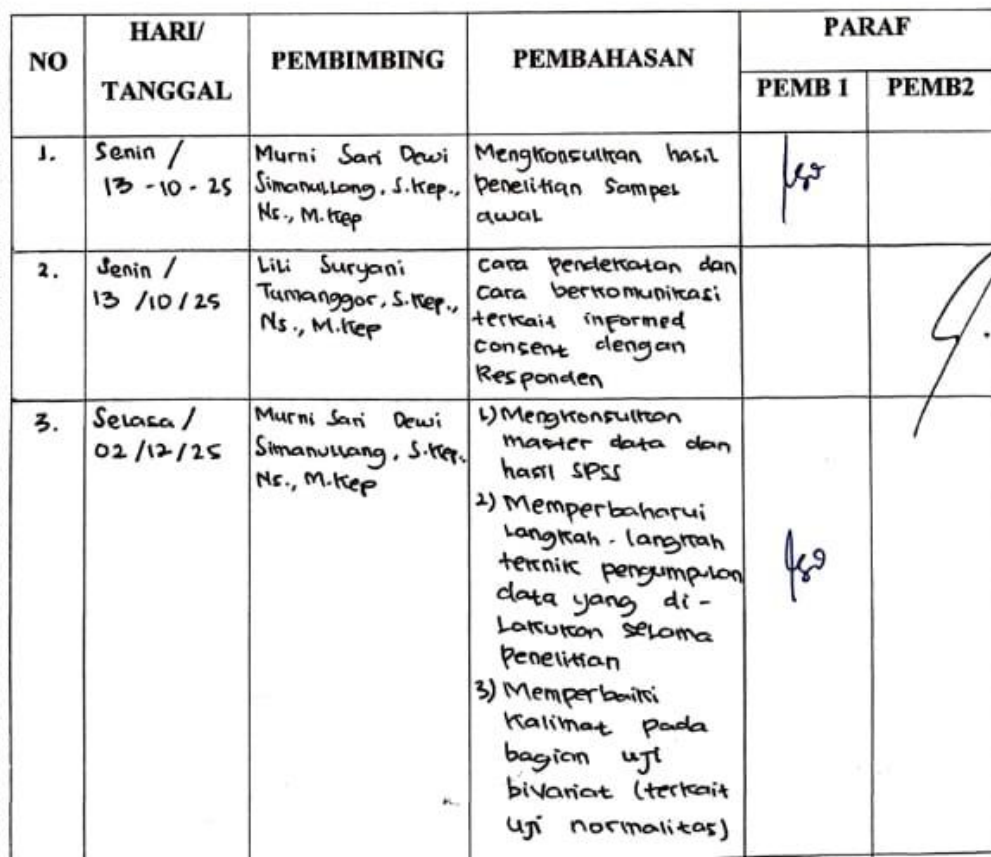 NO
HARI/
TANGGAL
PEMBIMBING
PEMBAHASAN
PARAF
PEMB 1
PEMB2
1.
Senin /
13 - 10 - 25
Murni Sari Dewi
Simanullang, S.Kep.,
Ns., M.Kep
Mengkonsulkan hasil
penelitian Sampel
awal
2.
Senin /
13 /10/25
Lili Suryani
Tumanggor, S.Kep.,
Ns., M.Kep
Cara pendekatan dan
cara berkomunikasi
terkait informed
consent dengan
Responden
3.
Selasa /
02/12/25
Murni Sari Dewi
Simanullang, S.Kep.,
Ns., M.Kep
1) Mengkonsulkan
master data dan
hasil SPSS
2) Memperbaharui
langkah - langkah
teknik pengumpulan
data yang di -
lakukan selama
penelitian
3) Memperbaiki
Kalimat pada
bagian uji
bivariat (terkait
uji normalitas)